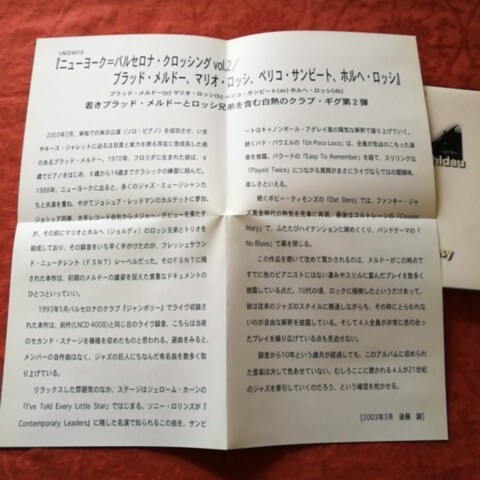 LNCD4010
『ニューヨーク=バルセロナ・クロッシング vol.2/
ブラッド・メルドー、マリオ・ロッシ、ペリコ・サンビート、ホルヘ・ロッシ』
ブラッド・メルドー(p) マリオ・ロッシ(b) ペリコ・サンビート(as) ホルヘ・ロッシ(ds)
若きブラッド・メルドーとロッシ兄弟を含む白熱のクラブ・ギグ第2弾
2003年2月、単独での来日公演（ソロ・ピアノ）を成功させ、いま
やキース・ジャレットに迫る注目度と実力を誇る存在に急成長した感
のあるブラッド・メルドー。1970年、フロリダに生まれた彼は、4
歳でピアノをはじめ、6歳から14歳までクラシックの練習に励んだ。
1988年、ニューヨークに出ると、多くのジャズ・ミュージシャンた
ちと共演を重ね、やがてジョシュア・レッドマンのカルテットに参加。
ジョシュア同様、大手レコード会社からメジャー・デビューを果たす
が、その前にマリオとホルヘ（ジョルディ）のロッシ兄弟とトリオを
結成しており、その録音をいち早く手がけたのが、フレッシュサウン
ド・ニュータレント（FSNT）レーベルだった。そのFSNTに残
された本作は、初期のメルドーの雄姿を捉えた貴重なドキュメントの
ひとつといっていい。
1993年5月バルセロナのクラブ『ジャンボリー』でライヴ収録さ
れた本作は、前作(LNCD 4008)と同じ日のライヴ録音、こちらは当夜
のセカンド・ステージを模様を収めたものと思われる。選曲をみると、
メンバーの自作曲はなく、ジャズの巨人にちなんだ有名曲を数多く取
り上げている。
リラックスした雰囲気のなか、ステージはジェローム・カーンの
『I've Told Every Little Star』ではじまる。ソニー・ロリンズが『
Contemporary Leaders』に残した名演で知られるこの曲を、サンビ
ートはキャノンボール・アダレイ風の陽気な解釈で盛り上げていく。
続くバド・パウエルの『Un Poco Loco』は、全員が気迫のこもった演
奏を披露。バラードの『Easy To Remember』を経て、スリリングな
『Played Twice』につながる展開がまさにライヴならではの醍醐味、
楽しさといえる。
続くボビー・ティモンズの『Dat Dere』では、ファンキー・ジャ
ズ黄金時代の熱気を見事に再現。最後はコルトレーンの『Cousin
Mary』で、ふたたびハイテンションに締めくくり、バンドテーマの『
No Blues』で幕を閉じる。
この作品を聴いて改めて驚かされるのは、メルドーがこの時点で
すでに他のピアニストにはない凄みやスリルに富んだプレイを数多く
披露している点だ。10代の頃、ロックに傾倒したというだけあって、
彼は従来のジャズのスタイルに精通しながらも、その枠にとらわれな
いのが自由な解釈を披露している。そして4人全員が非常に息の合っ
たプレイを繰り広げている点も見逃せない。
録音から10年という歳月が経過しても、このアルバムに収められ
た音楽は決して色あせていない。むしろここに聴かれる4人が21世紀
のジャズを牽引していくのだろう、という確信を抱かせる。
[2003年3月 後藤 誠]
hldau
sy